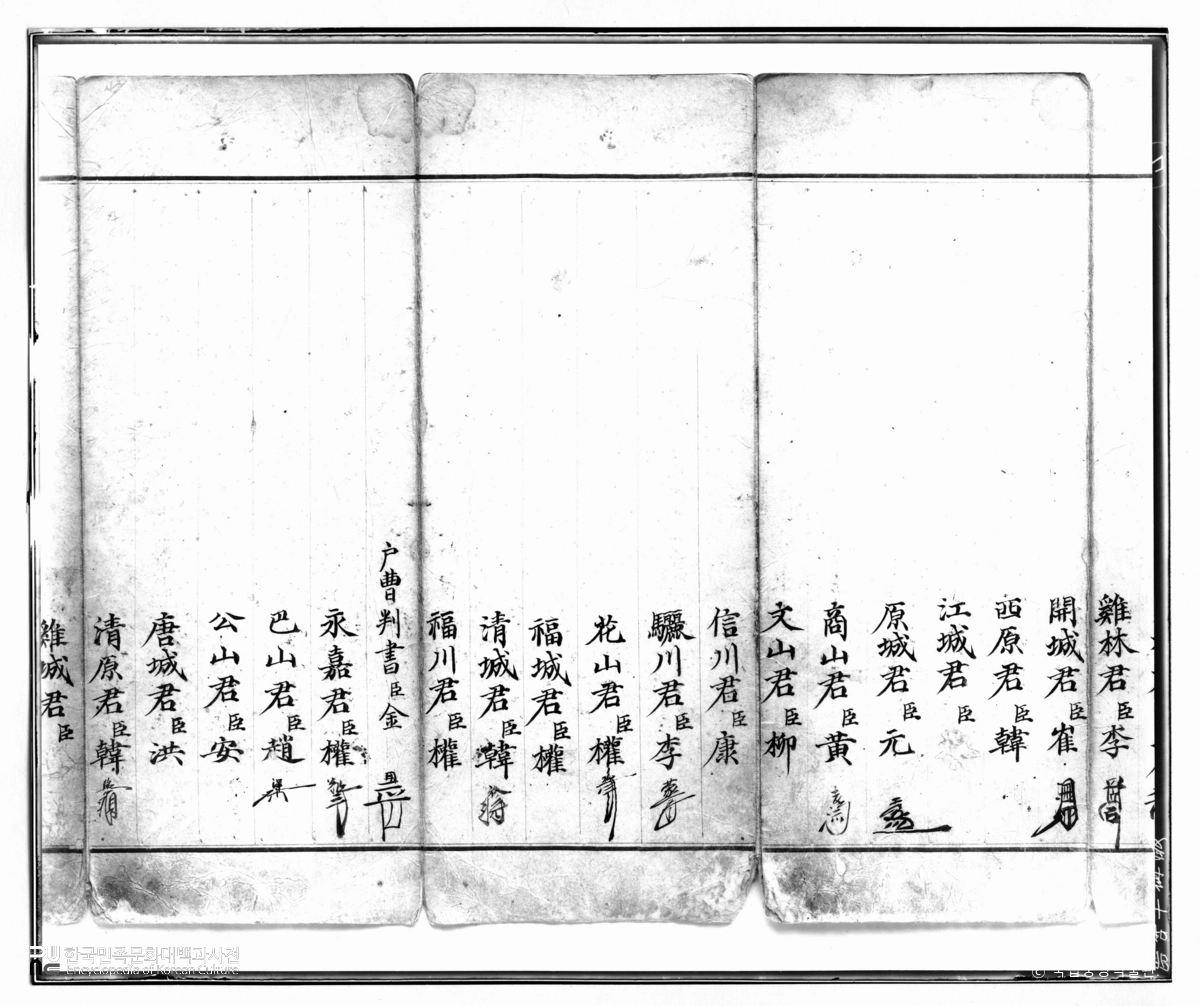 雞林君臣李
開城君臣崔
西原君臣韓
江城君臣
原城君臣元
商山君臣黃
文山君臣柳
信川君臣康
驪川君臣李
花山君臣權
福城君臣權
清城君臣韓
福川君臣權
户曹判書臣金
永嘉君臣權
巴山君臣趙
公山君臣安
唐城君臣洪
清原君臣韓
雞城君臣
한국민족문화대백과사전
Encyclopedia of Korean Culture